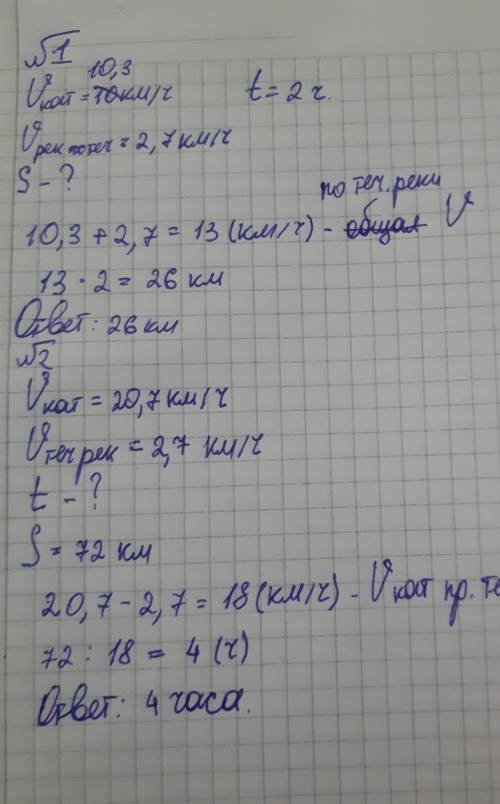 №1
Vкат = 10,3 км/ч t = 2 ч.
Vрек теч = 2,7 км/ч
S - ?
10,3 + 2,7 = 13 (км/ч) - общая по теч. реки V
13 · 2 = 26 км
Ответ: 26 км
№2
Vкат = 20,7 км/ч
Vтеч рек = 2,7 км/ч
t - ?
S = 72 км
20,7 - 2,7 = 18 (км/ч) - Vкат пр. те
72 : 18 = 4 (ч)
Ответ: 4 часа.